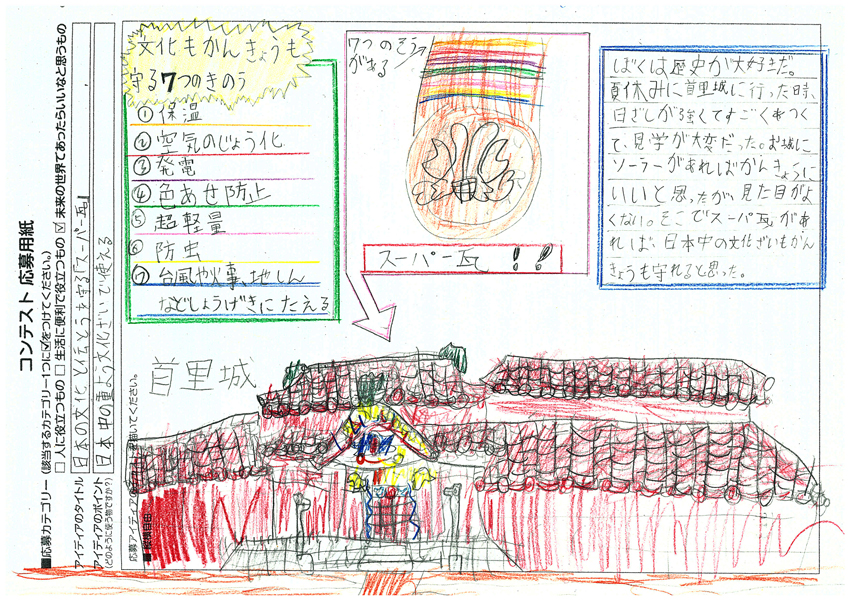 コンテスト 応募用紙
■応募カテゴリー（該当するカテゴリー1つに☑をつけてください。）
□ 人に役立つもの □ 生活に便利で役立つもの ☑ 未来の世界であったらいいなと思うもの
アイディアのタイトル
日本の文化と伝とうを守る「スーパー瓦」
アイディアのポイント
(どのように使う物ですか？)
日本中の重よう文化ざいで使える
文化もかんきょうも
守る7つのきのう
①保温
②空気のじょう化
③発電
④色あせ防止
⑤超軽量
⑥防虫
⑦台風や火事、地しん
などしょうげきにたえる
7つのそう
がある
スーパー瓦!!
ぼくは歴史が大好きだ。
夏休みに首里城に行った時、
日ざしが強くてすごくあつく
て、見学が大変だった。お城に
ソーラーがあればかんきょうに
いいと思ったが、見た目がよ
くない。そこでスーパー瓦があ
れば、日本中の文化ざいもかん
きょうも守れると思った。
首里城
■縦横自由